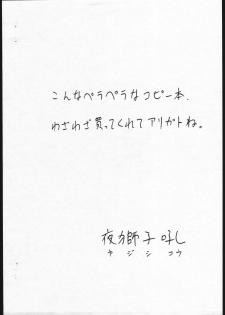 こんなペラペラなコピー本、
わざわざ買ってくれてアリガトね。
夜獅子吼
ヤジシ コウ